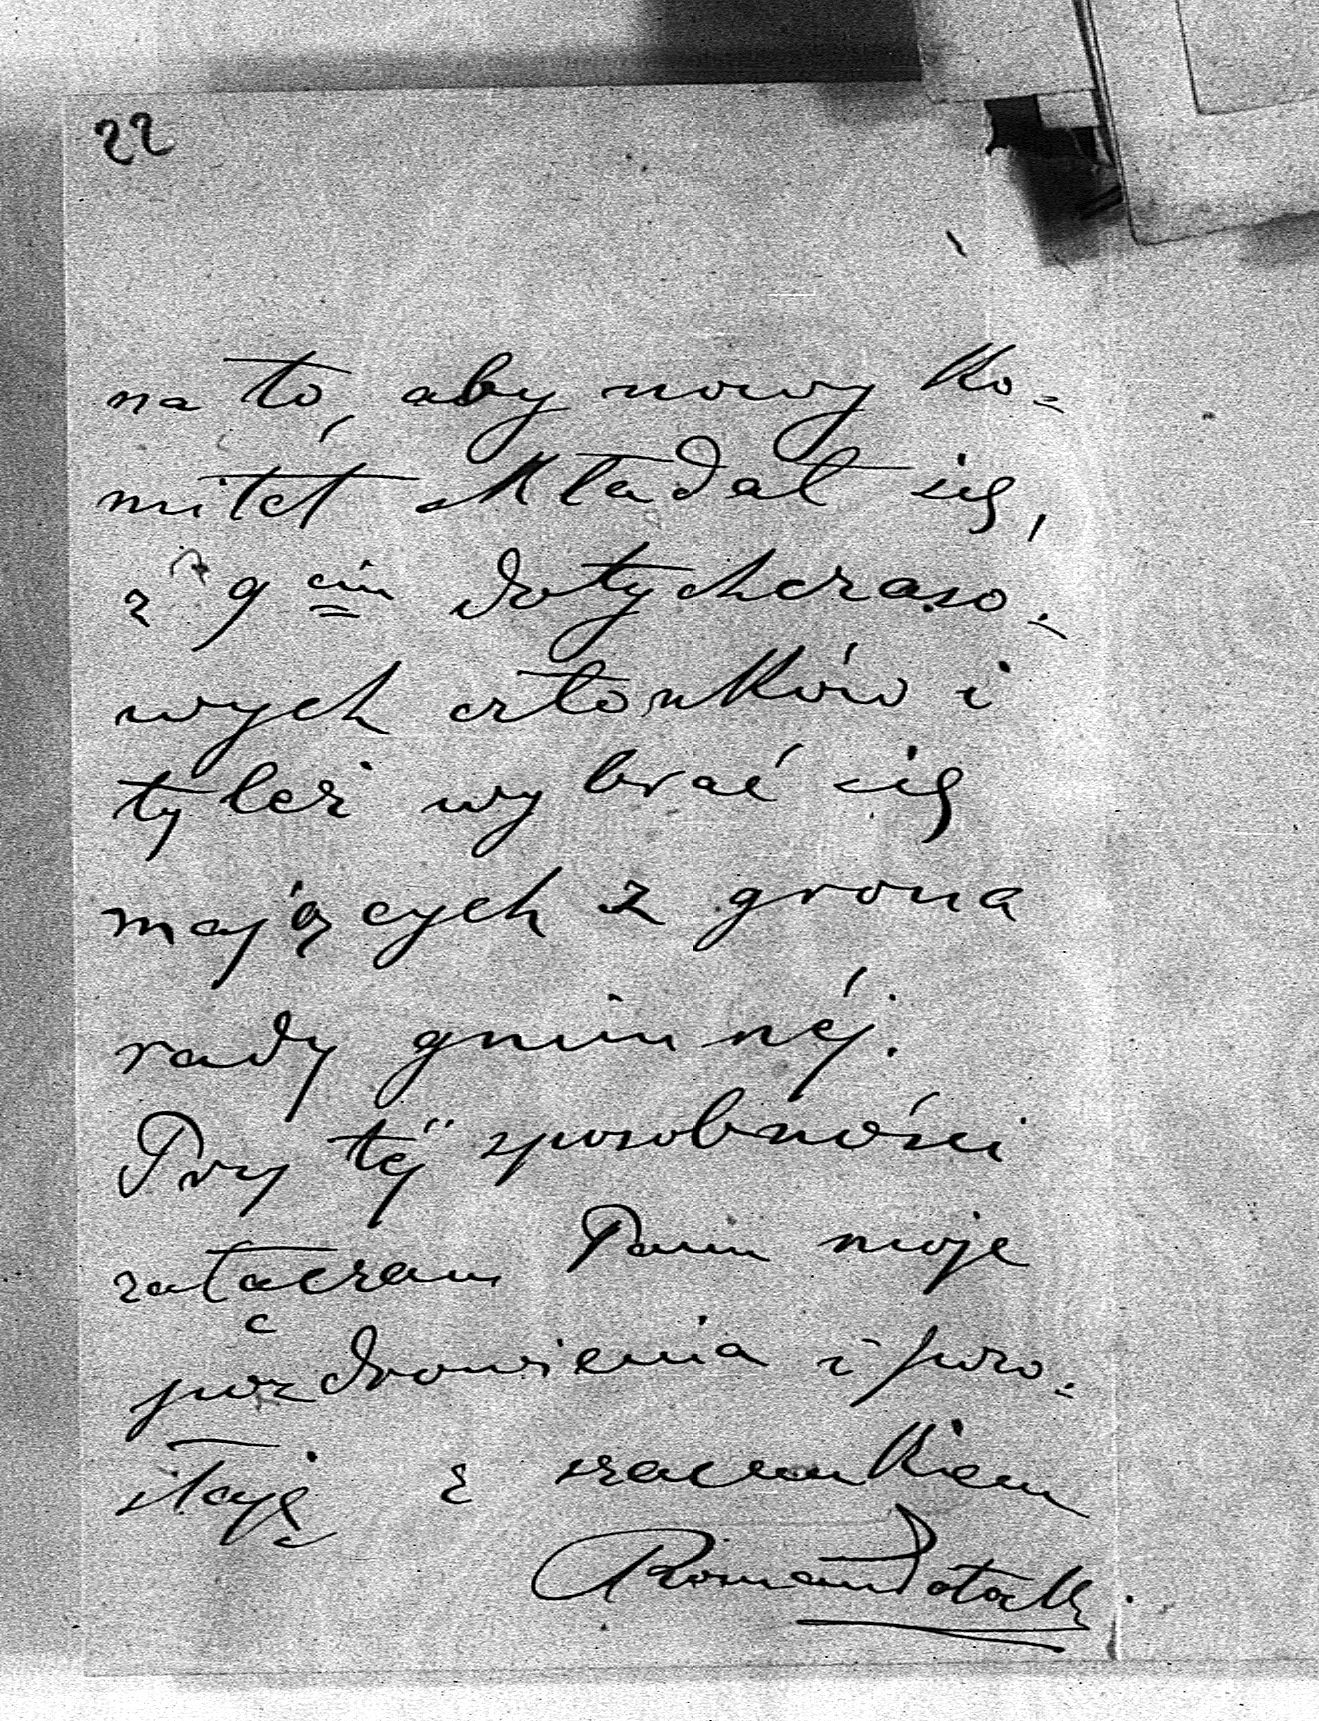 22
na to, aby nowy ko=
mitet składał się,
z 9 ciu dotychczaso=
wych członków i
tyleż wybrać się
mających z grona
rady gminnéj.
Przy téj sposobności
załaczam Panu moje
pozdrowienia i pozo=
staję z szacunkiem
Roman Potocki